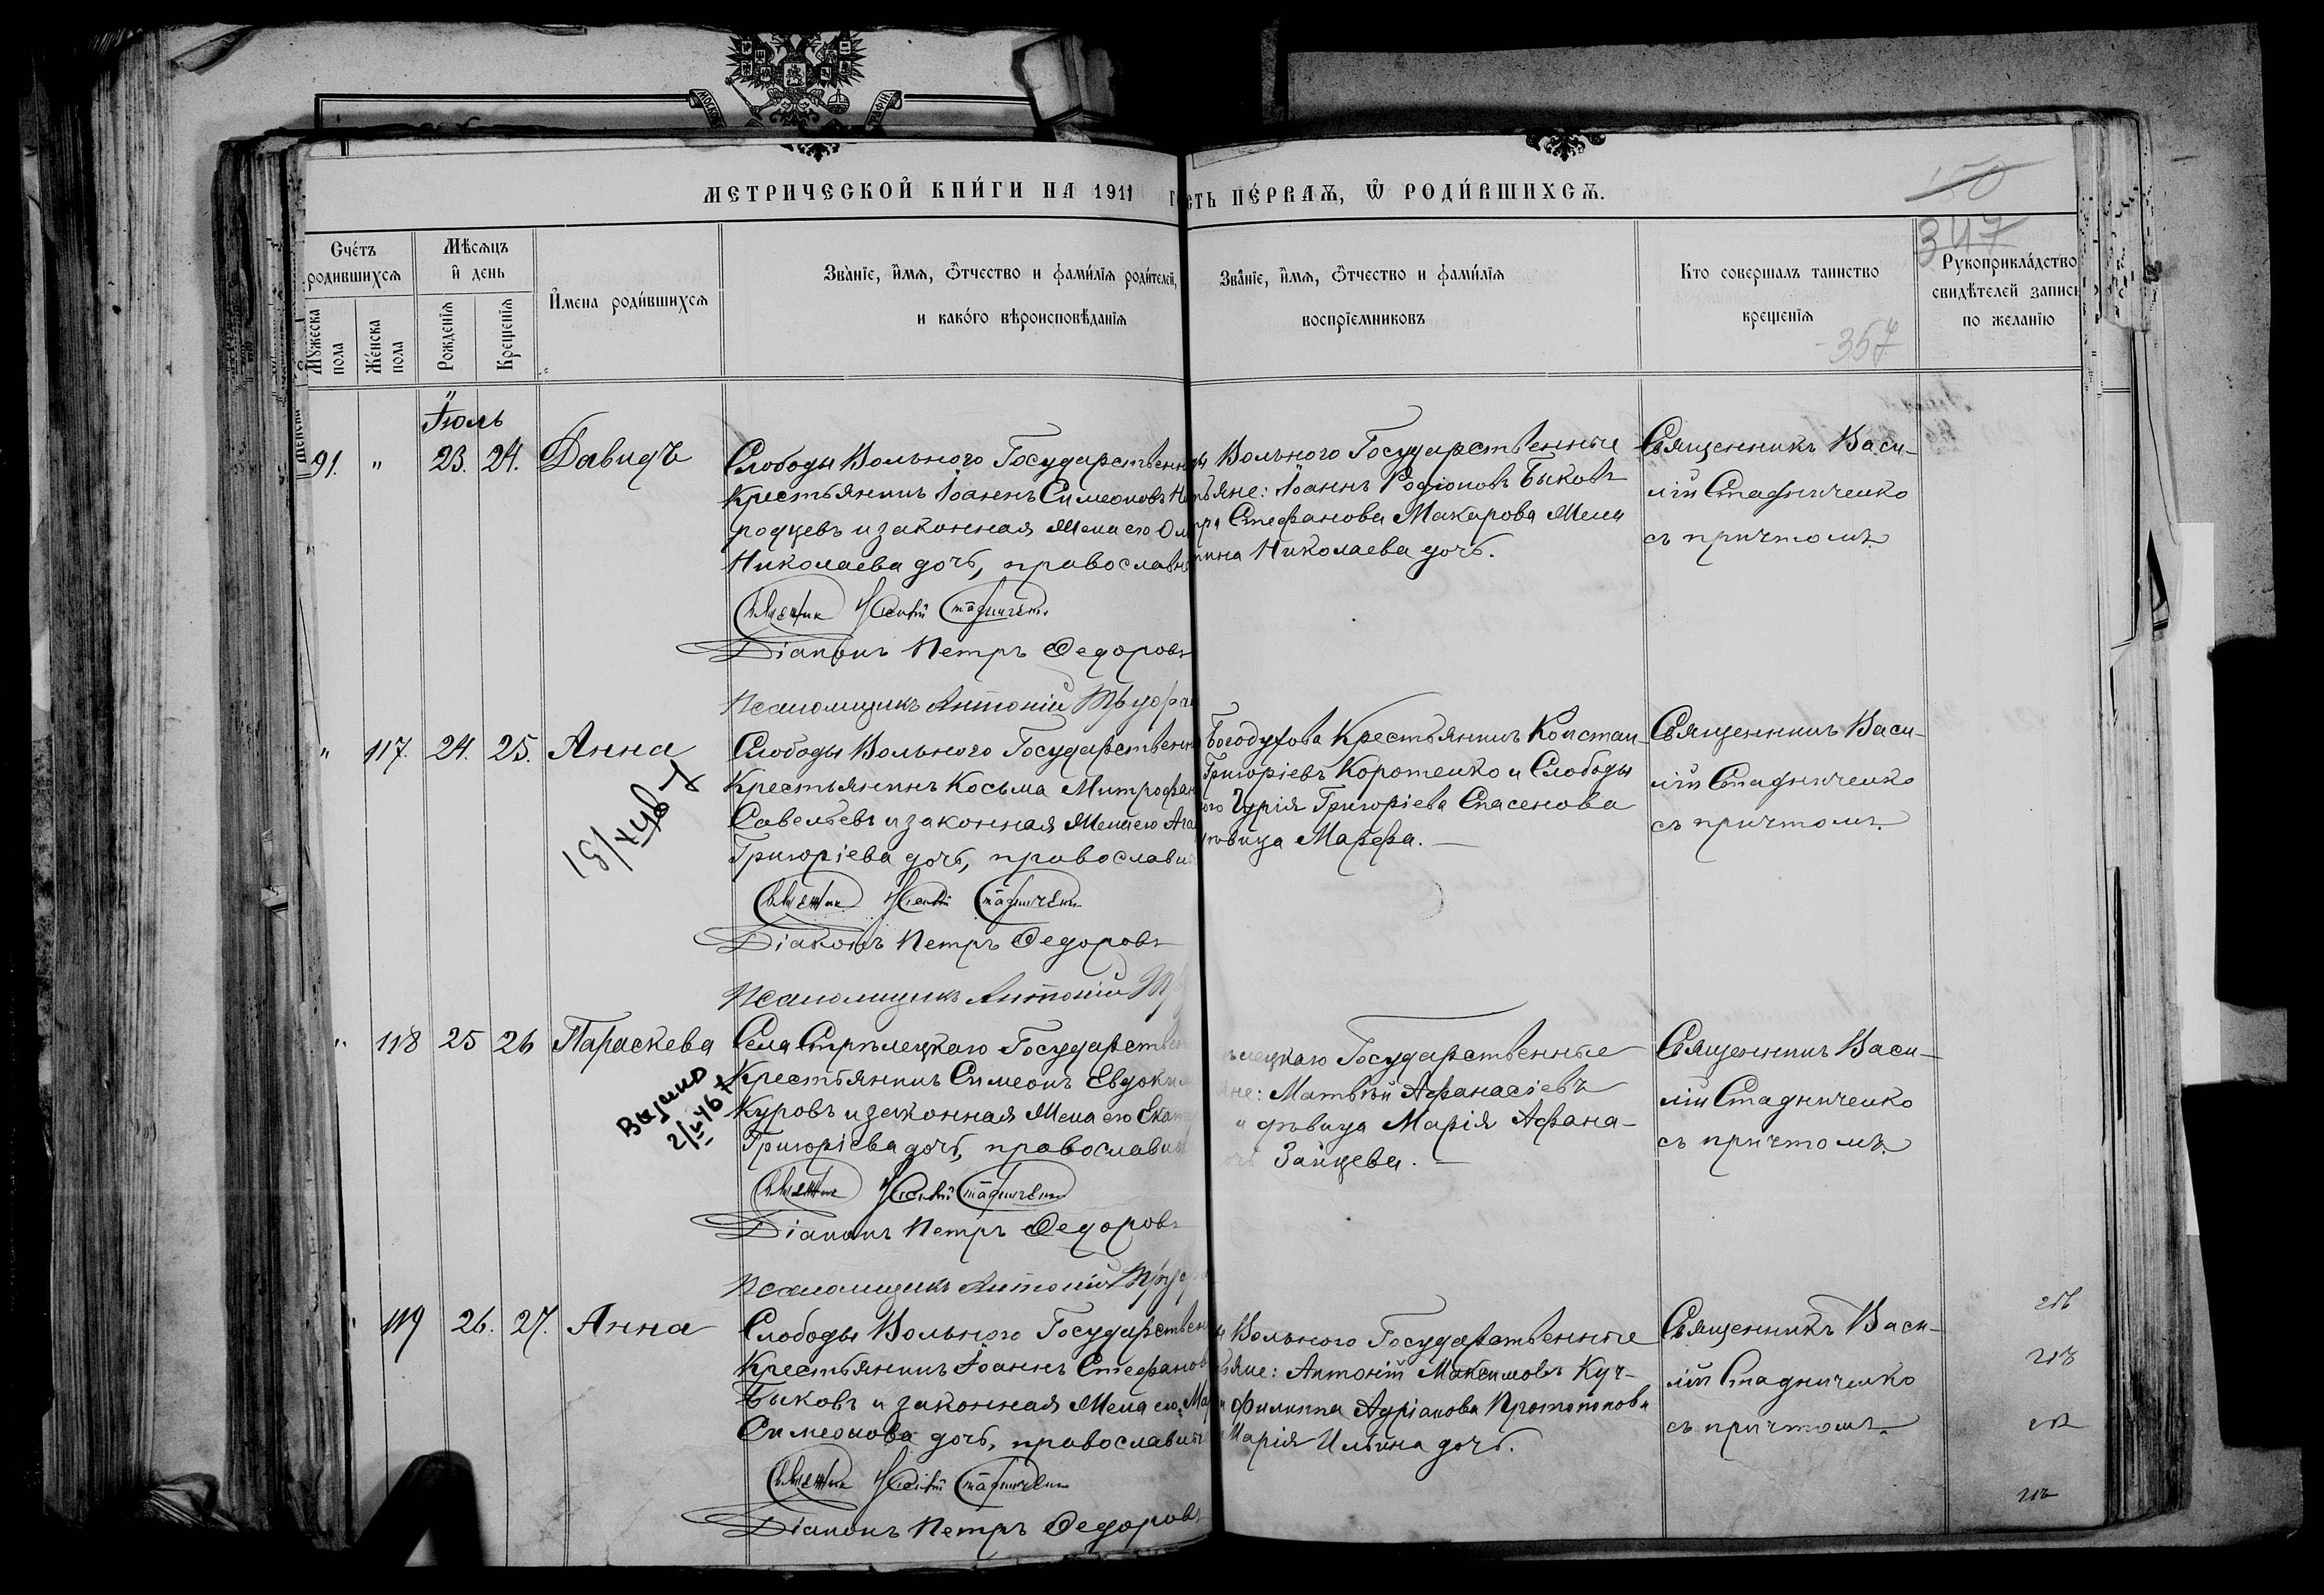 МЕТРИЧЕСКОЙ КНИ́ГИ НА 1911
СТЬ ПЕ́РВАѦ, Ѿ РОДИ́ВШИХСѦ.
150
347
357
Сче́тъ родившихсѧ
Мѣсѧцъ и день
И́мена роди́вшихсѧ
Мꙋжеска пола
Же́нска пола
Рожденїѧ
Крещенїѧ
Зва́нїе, и́мѧ, ѻ́тчество и фами́лїѧ роди́телей,
и како́го вѣроисповѣ́данїѧ
Зва́нїе, и́мѧ, ѻ́тчество и фами́лїѧ
воспрїемниковъ
Кто совершалъ таинство
крещенїѧ
Рукоприкла́дство
свидѣтелей записи
по желанїю
Іюль
91. " 23. 24. Давидъ
Слободы Вольного Государственн
Крестьянинъ Іоаннъ Симеоновъ
родцевъ и законная жена его
Николаева дочь, православн
Священник Василій Стадниченко
Діаконъ Петръ Федоровъ
Псаломщикъ Антоній
Вольного Государственные
яне: Іоаннъ Родіоновъ Быковъ
Стефанова Макарова жена
Николаева дочь.
Священникъ Васи-
лій Стадниченко
съ причтомъ.
" 117. 24. 25. Анна
Слободы Вольного Государственн
Крестьянинъ Косьма Митрофан
Савельевъ и законная жена его Ага
Григоріева дочь, православн
Священник Василій Стадниченко
Діаконъ Петръ Федоровъ
Псаломщикъ Антоній
Богодухова Крестьянинъ Констан-
Григоріевъ Коротенко и Слободы
Гурія Григоріева Спасенова
вица Марфа.
Священникъ Васи-
лій Стадниченко
съ причтомъ.
" 118 25 26 Параскева
Села Стрѣлецкаго Государствен
Крестьянинъ Симеонъ Евдоким
Куровъ и законная жена его Екат
Григоріева дочь, православн
Священник Василій Стадниченко
Діаконъ Петръ Федоровъ
Псаломщикъ Антоній
лецкаго Государственные
яне: Матвѣй Афанасіевъ
и дѣвица Марія Афана-
Зайцева.
Священникъ Васи-
лій Стадниченко
съ причтомъ.
119 26. 27. Анна
Слободы Вольного Государствен
Крестьянинъ Іоаннъ Стефанов
Быковъ и законная жена его Мар
Симеонова дочь, православны
Священник Василій Стадниченко
Діаконъ Петръ Федоровъ
Вольного Государственные
яне: Антоній Максимовъ Куч-
и Филиппа Адріанова Протопопова
Марія Ильина дочь.
Священникъ Васи-
лій Стадниченко
съ причтомъ.